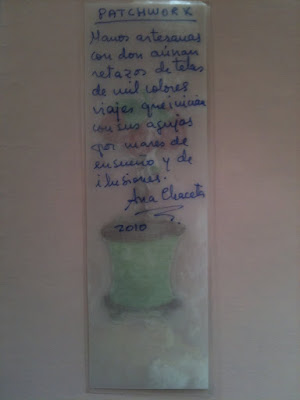 PATCHWORK
Manos artesanas
con don aúnan
retazos de telas
de mil colores
viajes que inician
con sus agujas
por mares de
ensueño y de
ilusiones.
Ana Chaceta
2010